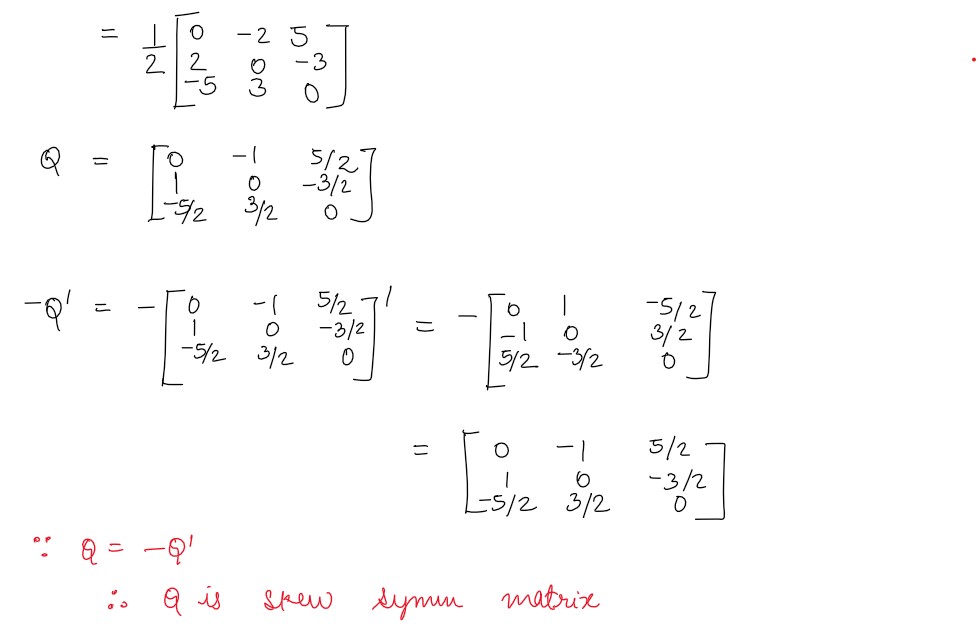 = 1/2 [0 -2 5
2 0 -3
-5 3 0]
Q = [0 -1 5/2
1 0 -3/2
-5/2 3/2 0]
-Q' = - [0 -1 5/2
1 0 -3/2
-5/2 3/2 0]' = - [0 1 -5/2
-1 0 3/2
5/2 -3/2 0]
= [0 -1 5/2
1 0 -3/2
-5/2 3/2 0]
∵ Q = -Q'
∴ Q is skew symm matrix